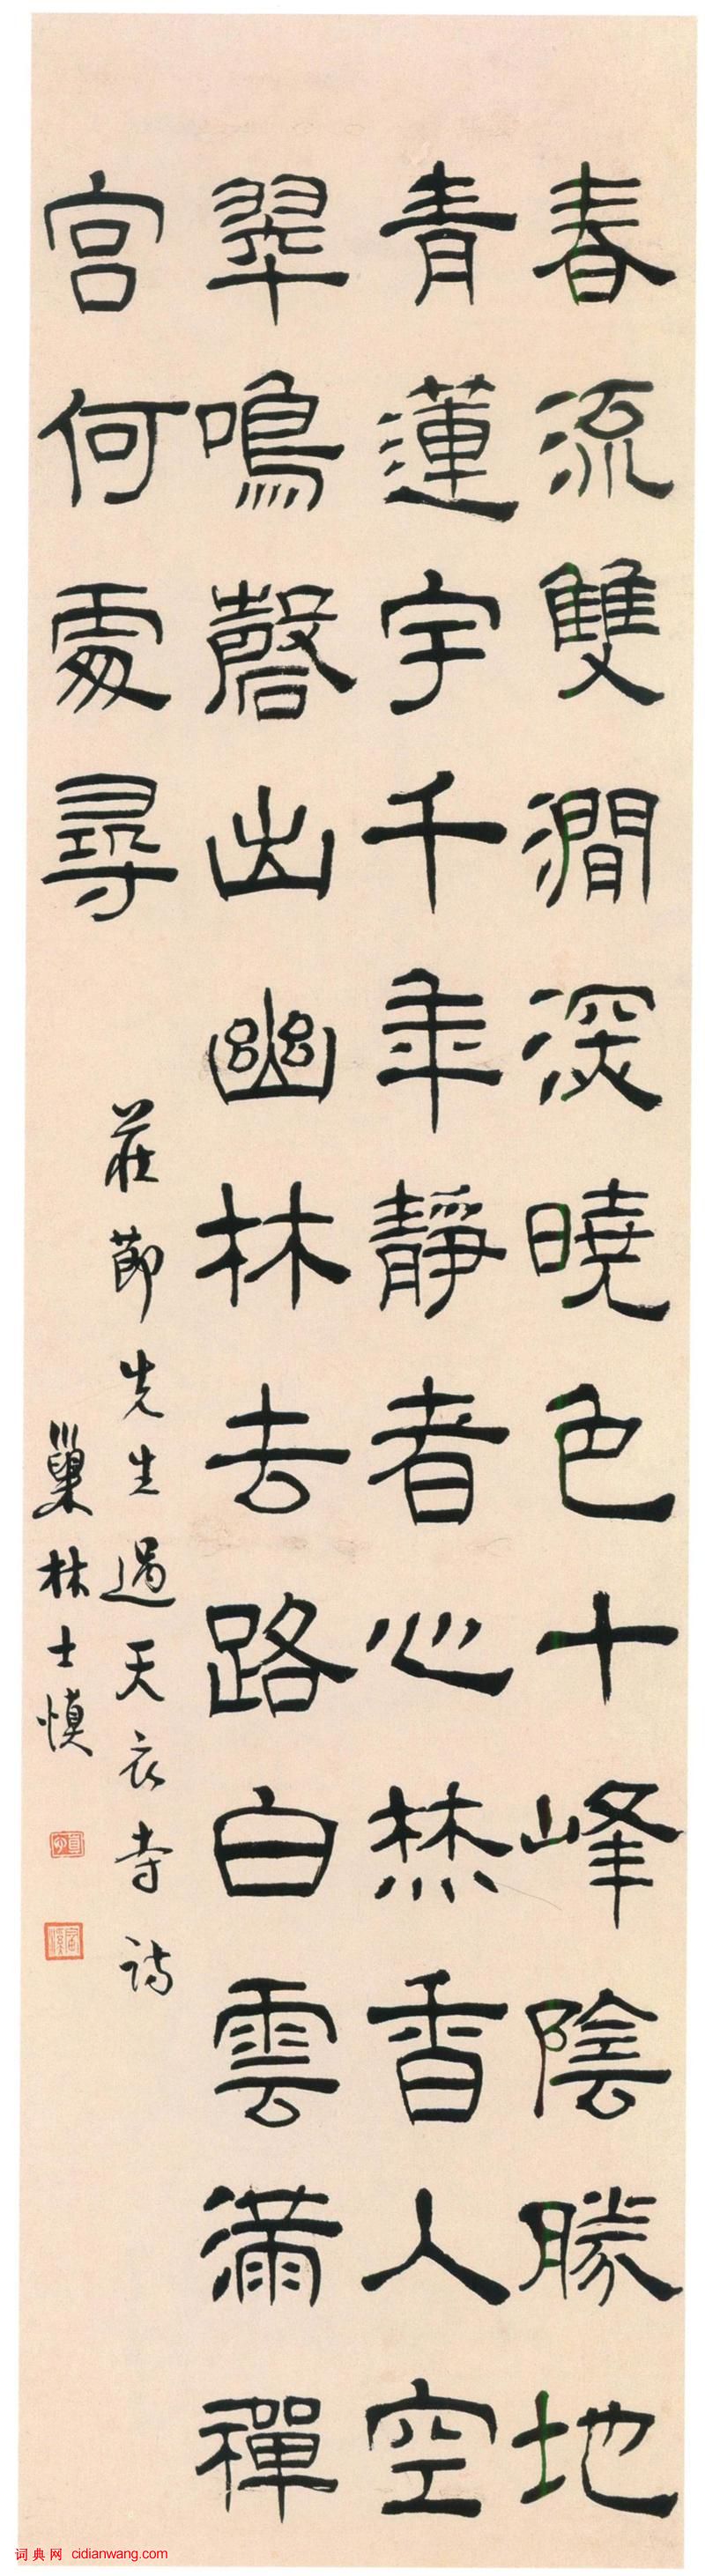 春流雙澗深曉色十峰陰勝地
青蓮宇千年靜者心焚香人空
翠鳴磬出幽林去路白雲滿禪
宫何處尋
莊節先生過天衣寺詩
巢林士慎
词典网 cidianwang.com